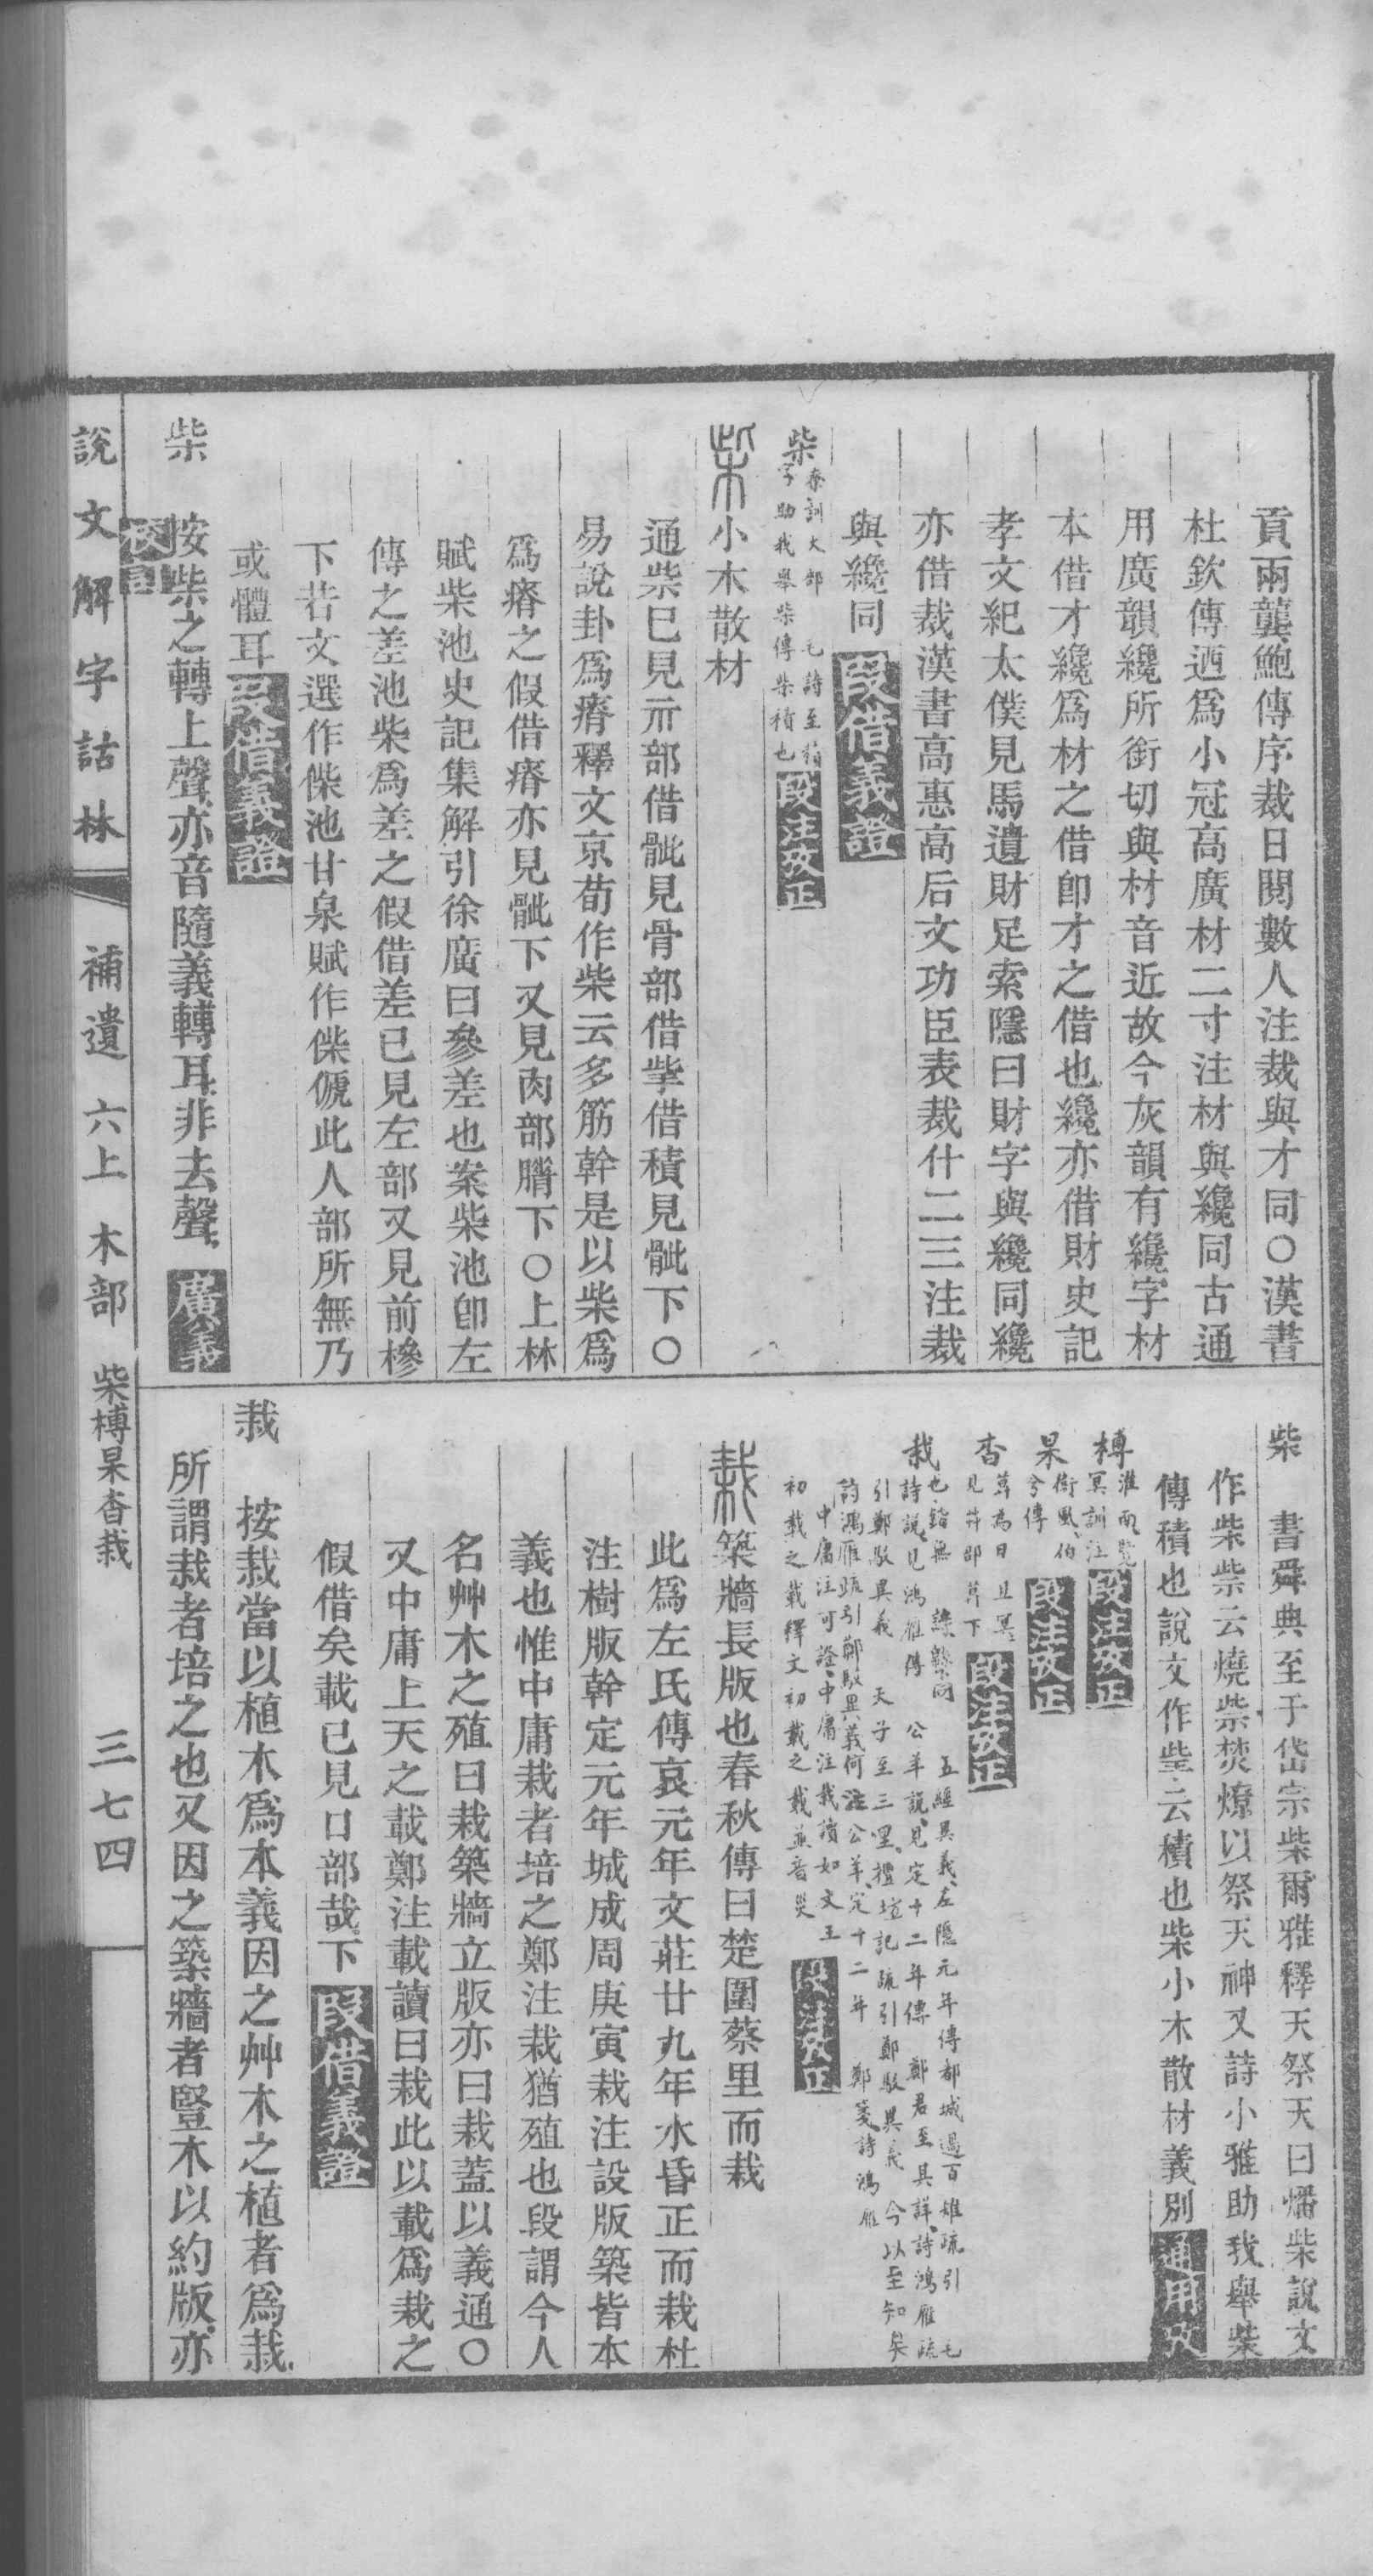 貢兩龔鮑傳序裁日閱數人注裁與才同○漢書
杜欽傳迺爲小冠高廣材二寸注材與纔同古通
用廣韻纔所銜切與材音近故今灰韻有纔字材
本借才纔爲材之借卽才之借也纔亦借財史記
孝文紀太僕見馬遺財足索隱曰財字與纔同纔
亦借裁漢書高惠高后文功臣表裁什二三注裁
與纔同 段借義證
柴 泰訓大部 毛詩至稱
字助我舉柴傳柴積也 段注攷正
柴 小木散材
通柴已見示部借骴見骨部借掌借積見骴下○
易說卦爲瘠釋文京荀作柴云多筋幹是以柴爲
爲瘠之假借瘠亦見骴下又見肉部膌下○上林
賦柴池史記集解引徐廣曰參差也案柴池卽左
傳之差池柴爲差之假借差已見左部又見前槮
下若文選作傑池甘泉賦作傑傂此人部所無乃
或體耳 段借義證
柴 按柴之轉上聲亦音隨義轉耳非去聲 廣義
校訂
柴 書舜典至于岱宗柴爾雅釋天祭天曰燔柴說文
作柴柴云燒柴焚燎以祭天神又詩小雅助我舉柴
傳積也說文作㧘云積也柴小木散材義別 通用攷
榑 淮南覽
冥訓注 段注攷正
杲 衞風伯
兮傳 段注攷正
杳 莫爲日且冥
見茻部莫下 段注攷正
栽 五經異義左隱元年傳都城過百雉疏引
詩說見鴻雁傳 公羊說見定十二年傳 鄭君至具詳詩鴻雁疏
引鄭駁異義 天子至三里禮坊記疏引鄭駁異義 今以至知矣
詩鴻雁疏引鄭駁異義何注公羊定十二年 鄭箋詩鴻雁
中庸注可證中庸注栽讀如文王
初載之載釋文初載之載並音災 段注攷正
栽 築牆長版也春秋傳曰楚圍蔡里而栽
此爲左氏傳哀元年文莊廿九年水昏正而栽杜
注樹版幹定元年城成周庚寅栽注設版築皆本
義也惟中庸栽者培之鄭注栽猶殖也段謂今人
名艸木之殖曰栽築牆立版亦曰栽蓋以義通○
又中庸上天之載鄭注載讀曰栽此以載爲栽之
假借矣載已見口部哉下 段借義證
栽 按栽當以植木爲本義因之艸木之植者爲栽
所謂栽者培之也又因之築牆者豎木以約版亦
說文解字詁林 補遺 六上 木部 柴榑杲杳栽 三七四